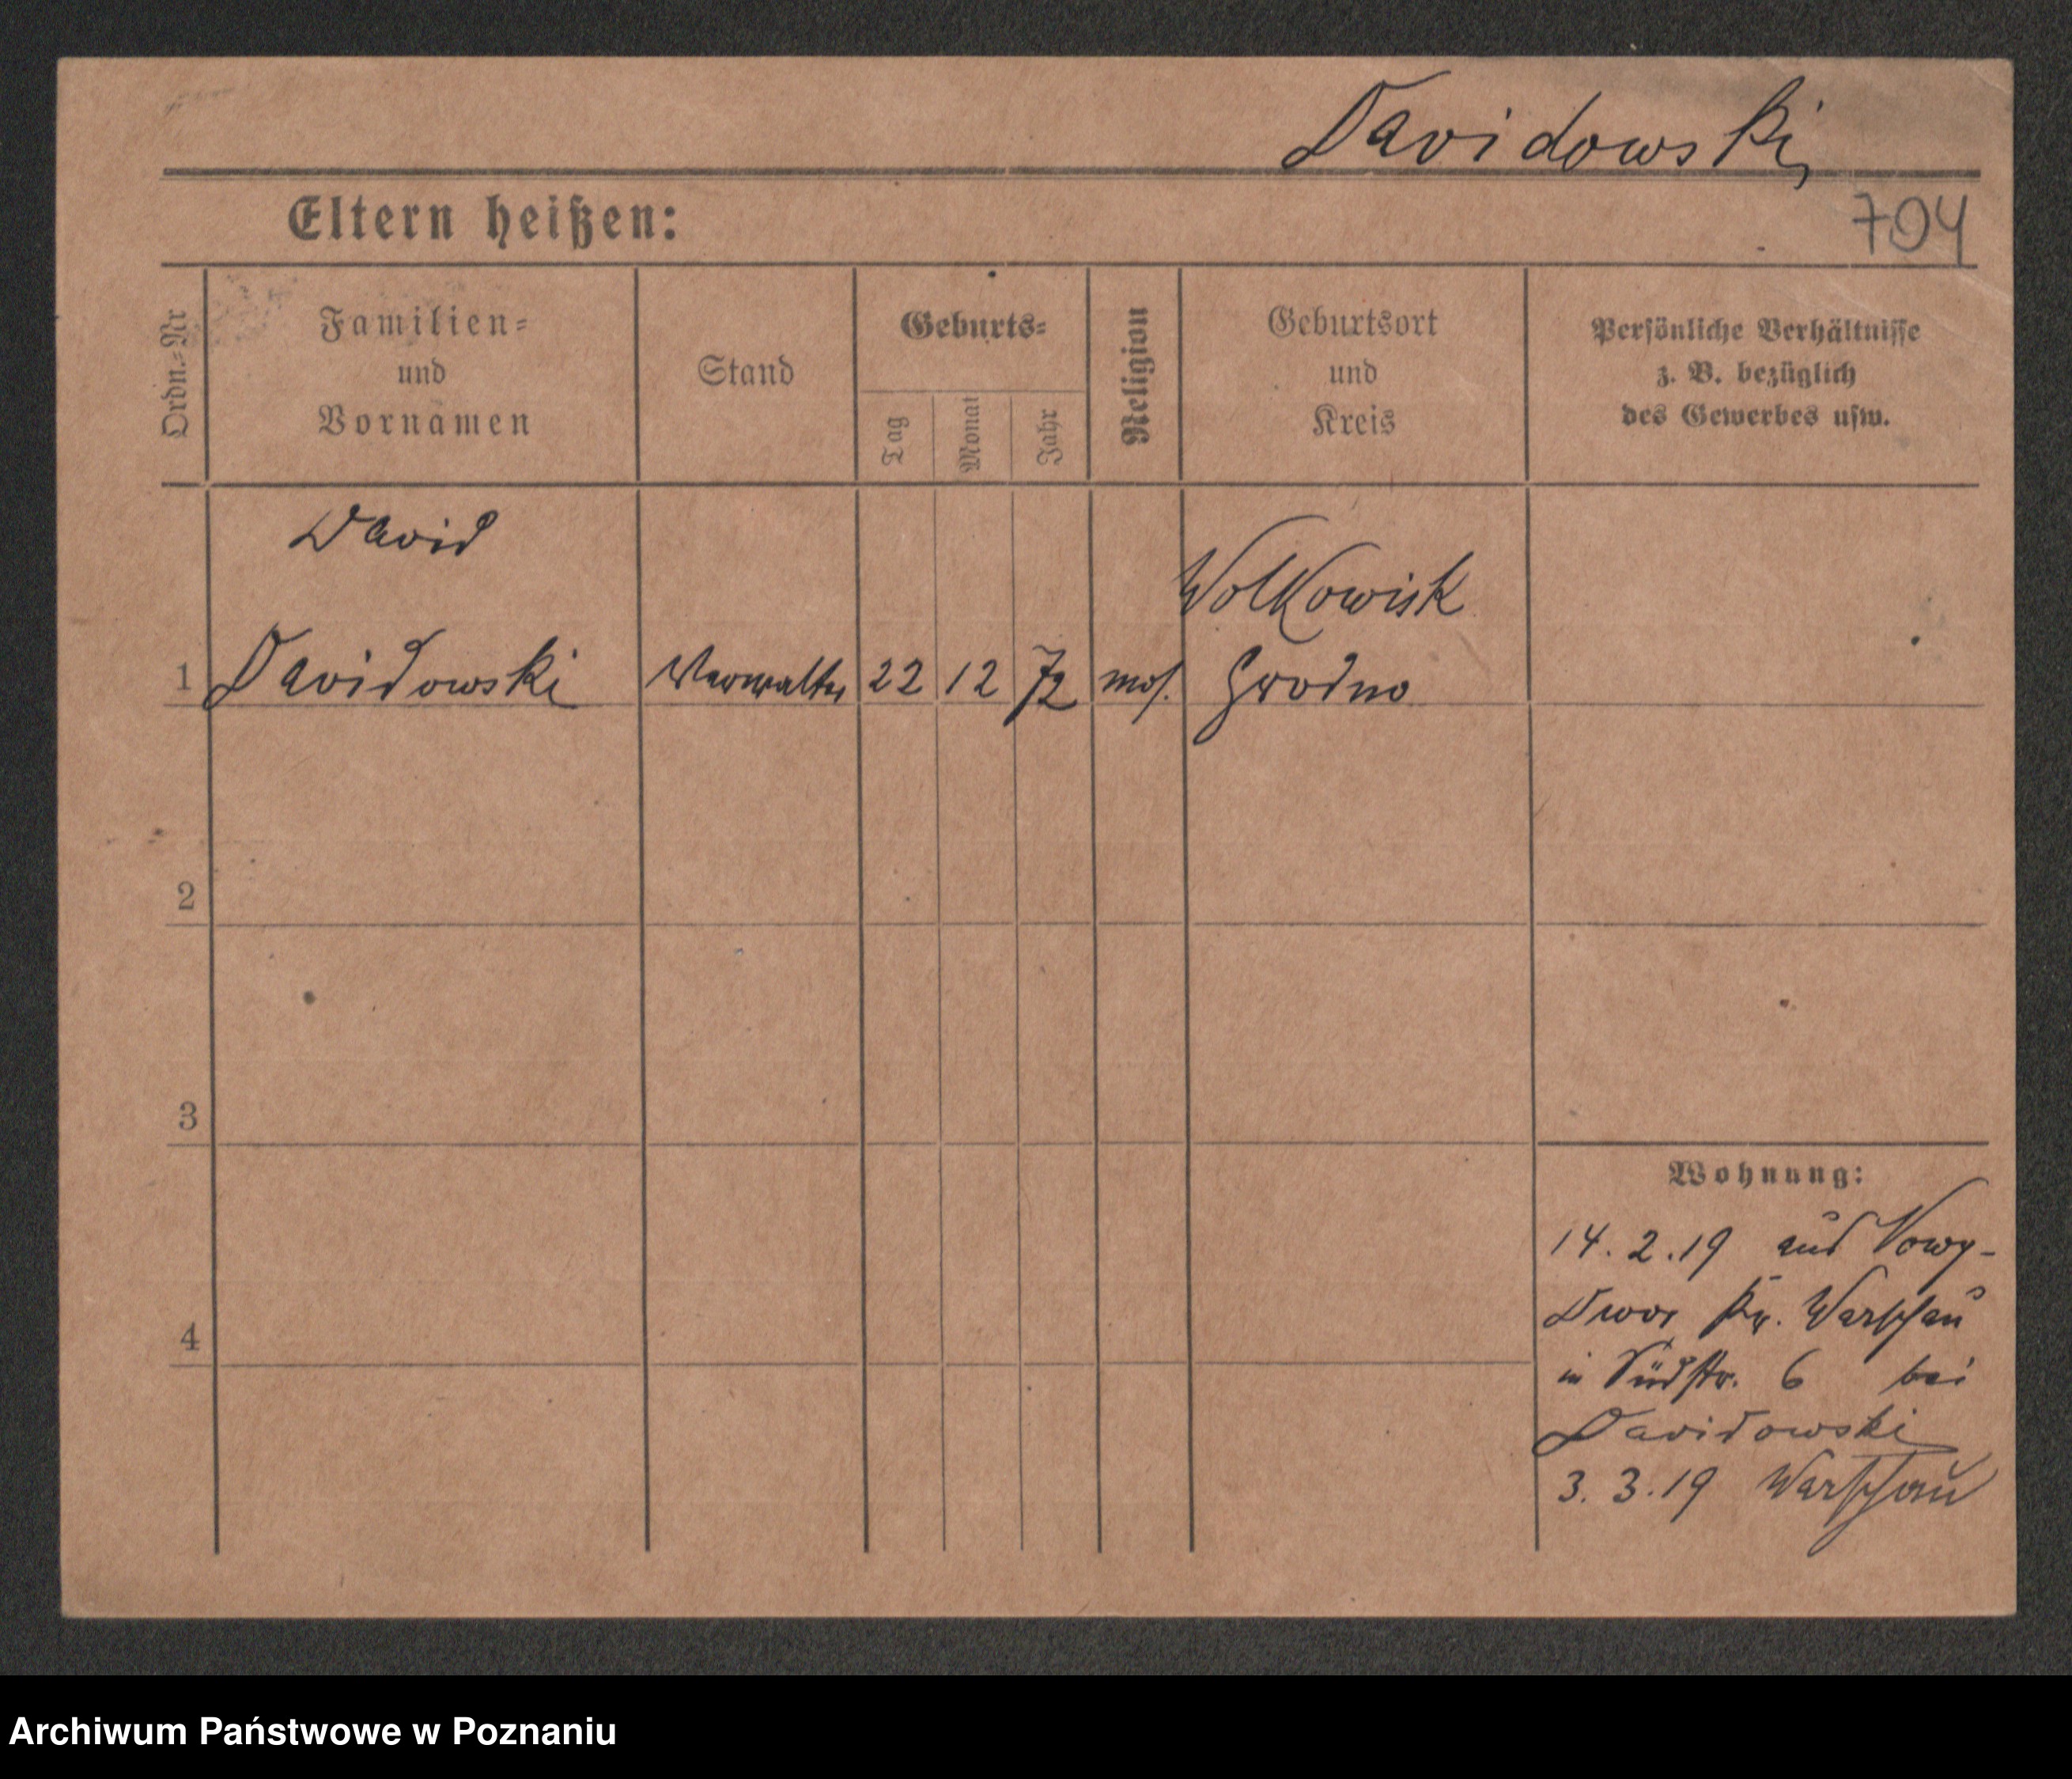 Davidowski,
Eltern heißen:
704
Ordn.=Nr
Familien=
und
Vornamen
Stand
Geburts=
Tag
Monat
Jahr
Religion
Geburtsort
und
Kreis
Persönliche Verhältnisse
z. B. bezüglich
des Gewerbes usw.
David
Wolkowisk
1 Davidowski Verwalter 22 12 72 mos. Grodno
2
3
Wohnung:
14.2.19 aus Nowy-
Dwor Kr. Warschau
4
in Südstr. 6 bei
Davidowski
3.3.19 Warschau
Archiwum Państwowe w Poznaniu